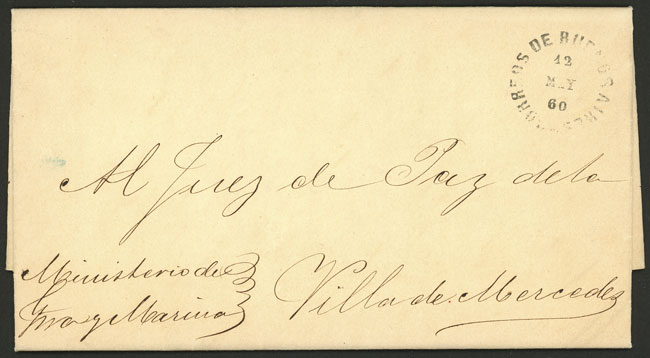 CORREOS DE BUENOS AIRES
12
MAY
60
Al Juez de Paz de la
Villa de Mercedes
Ministerio de
y Marina